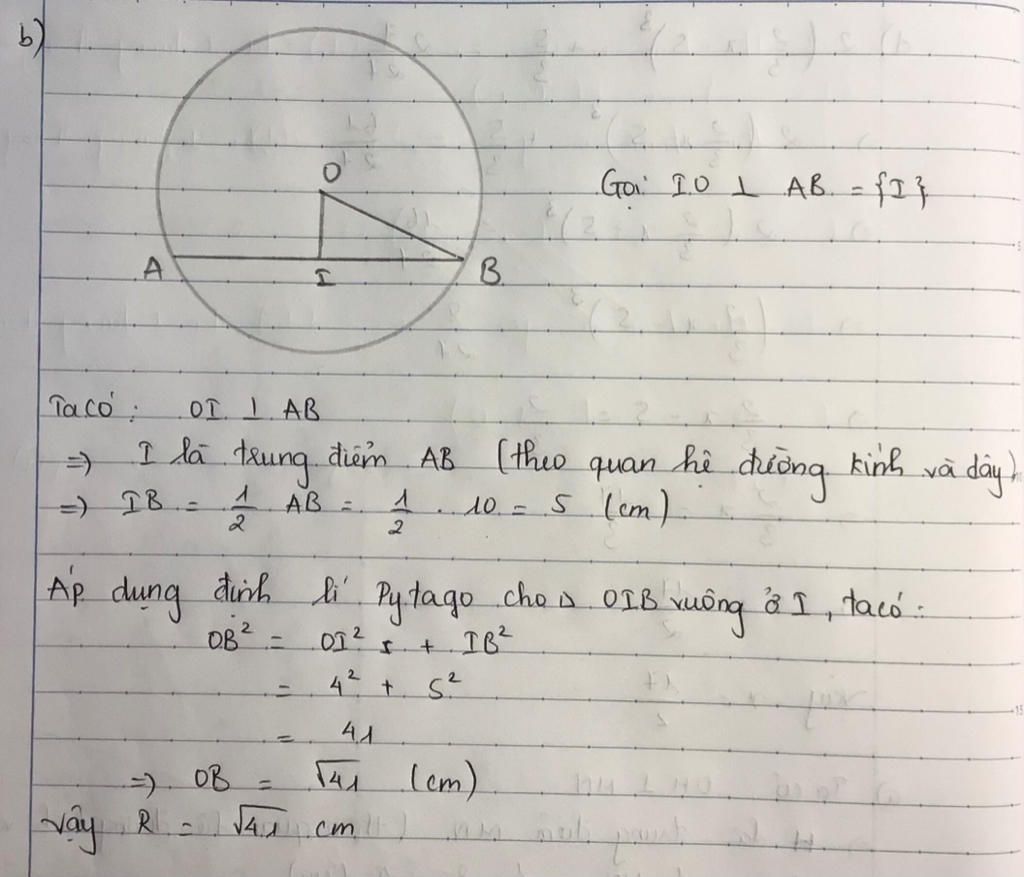 b)
O
Gọi IO ⊥ AB = {I}
A I B
Ta có : OI ⊥ AB
=> I là trung điểm AB (theo quan hệ đường kính và dây)
=> IB = 1/2 AB = 1/2 . 10 = 5 (cm)
Áp dụng định lí Pytago cho Δ OIB vuông ở I, ta có :
OB² = OI² + IB²
= 4² + 5²
= 41
=> OB = √41 (cm)
Vậy R = √41 cm